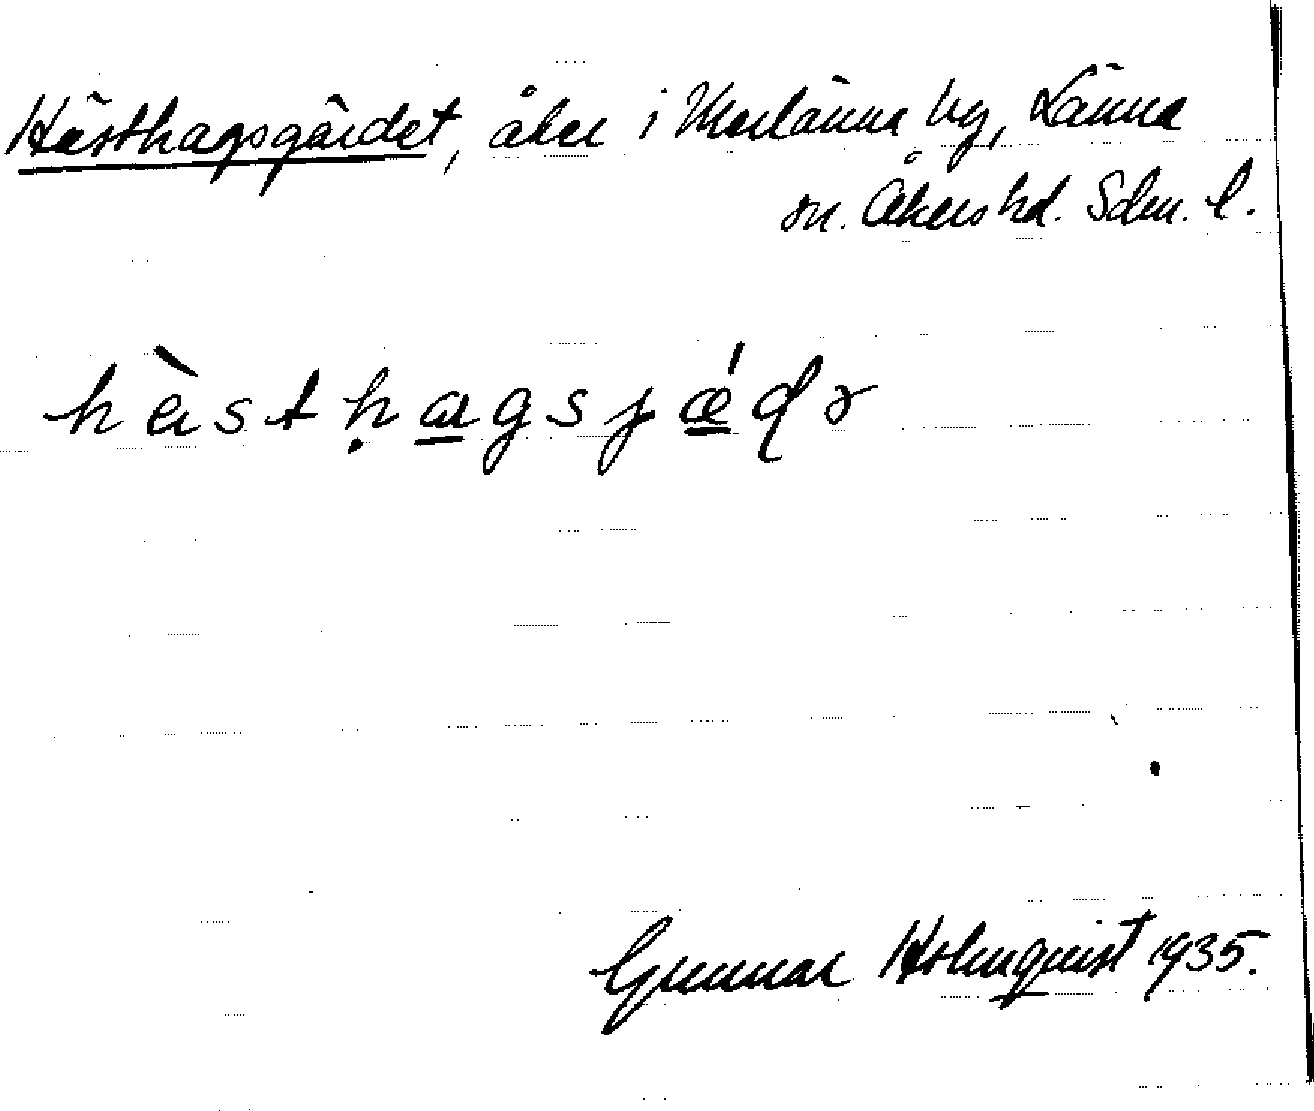 Hästhagsgärdet, åker i Merlänna by, Länna
sn. Åkers hd. Sdm. l.
hàsthagsjǽdə
Gunnar Holmquist 1935.